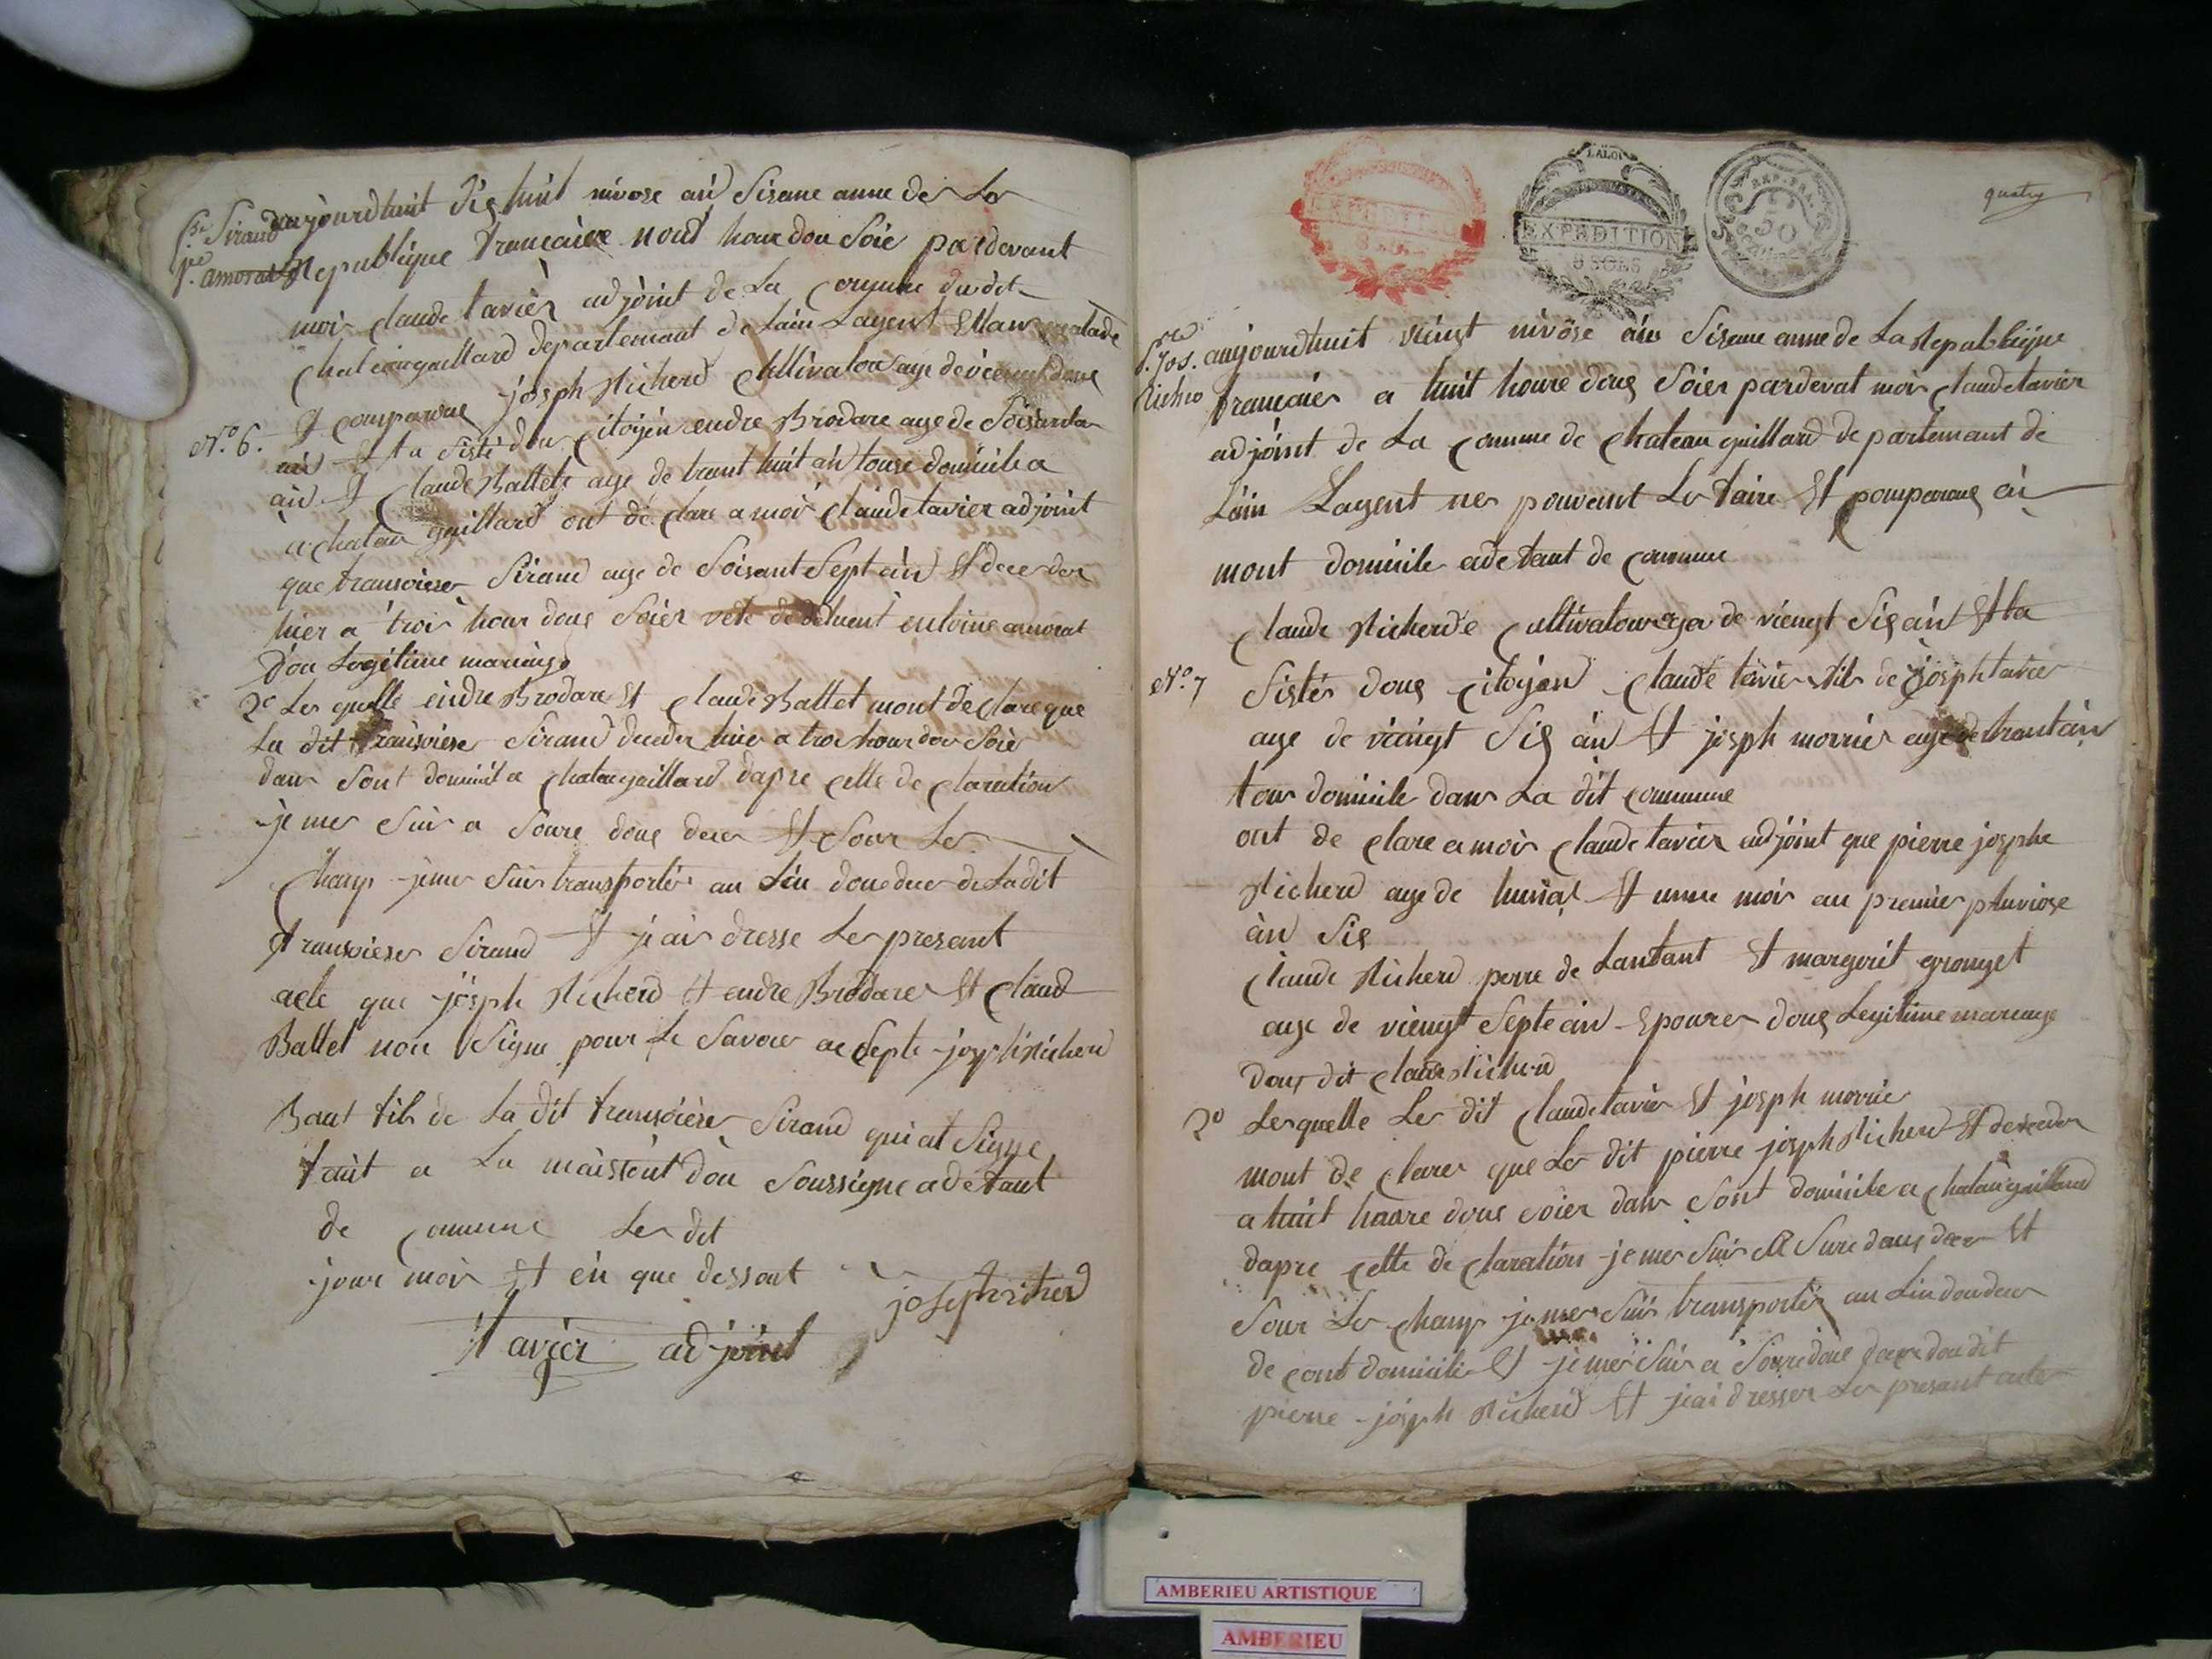 fse Siraud
fe amorat
aujourdhuit dis huit nivose an Sisene anne de La
Republique francaisse nout heur dou Soir pardevant
moi Claude tavier adjoint de La Comune dudit
Chateaugaillard departement de Lain Lagent Etan malade
Et comparous joseph Richerd Cultivatour age de
N.º 6.
an Et a Sisté dou Citoyin endre Brodare age de Soisanta
an Et Claude Ballet age de trant huit an touse domicile a
a Chatau gaillard ont dé Clare a moi Claude tavier adjoint
que transoiese Siraud age de Soisant Sept an Et decede
hier a troi hour dous Soier veve de defuent entoine amorat
dou Legitime mariage
2º Les quelle endre Brodare Et Claude Ballet mont de Clare que
La dit fransoiese Siraud decede hier a troi hour dou Soir
dans Sont domicil a Chataugaillard dapre Cette de Claration
je me Suis a Soure dous deces Et Sour Le
Chanp je me Suis transporter au Lieu dou deces de Ladit
fransoiese Siraud Et jai dresse Le presant
acte que joseph Richerd Et endre Brodare Et Claud
Ballet non Signe pour Le Savoir acsepte joseph Richerd
Bau fils de La dit fransoiese Siraud qui at Signe
fait a La maisont dou Soussigne a defaut
de Comune Les dit
jour moi Et en que dessout
josephricherd
tavier adjoint
EXPEDITION
LA LOI
EXPEDITION
REP. FRA.
50
quatre
P. Jos.
Richer
aujourdhuit vieingt nivose an Sisene anne de La Republique
francaies a huit houre dous Soier pardevat moi Claude tavier
adjoint de La Comune de Chateau guillard de partemant de
Lain Lagent ne pouvant Le faire Et Comparous an
mont domicile a defaut de Commune
Claude Richerde Cultivatour age de vieingt Sis an Et a
N.º 7
Sister dous Citoyen Claude tavier fils de joseph tavier
age de vieingt Sis an Et joseph morrier age de trant an
tous domicile dans La dit Commune
ont de Clare a moi Claude tavier adjoint que pierre josephe
Richerd age de Et unne moi au premier pluviose
an Sis
Claude Richerd perre de Lanfant Et margerit gronget
age de vieingt Septe an Epouse dous Legitime mariage
dous dit Claude Richerd
2º Lesquelle Le dit Claude tavier Et joseph morrier
mont de Clarer que Le dit pierre joseph Richerd Et deceder
a huit houre dous Soier dans Sont domicile a Chatau gaillard
dapre Cette de Claration je me Suis a Sure dous deces Et
Sour Le Chanp je me Suis transporter au Lieu dou deces
de Cont domicile Et je me Suis a Soure dous deces dou dit
pierre joseph Richerd Et jai dresser Le presant acte
AMBERIEU ARTISTIQUE
AMBERIEU